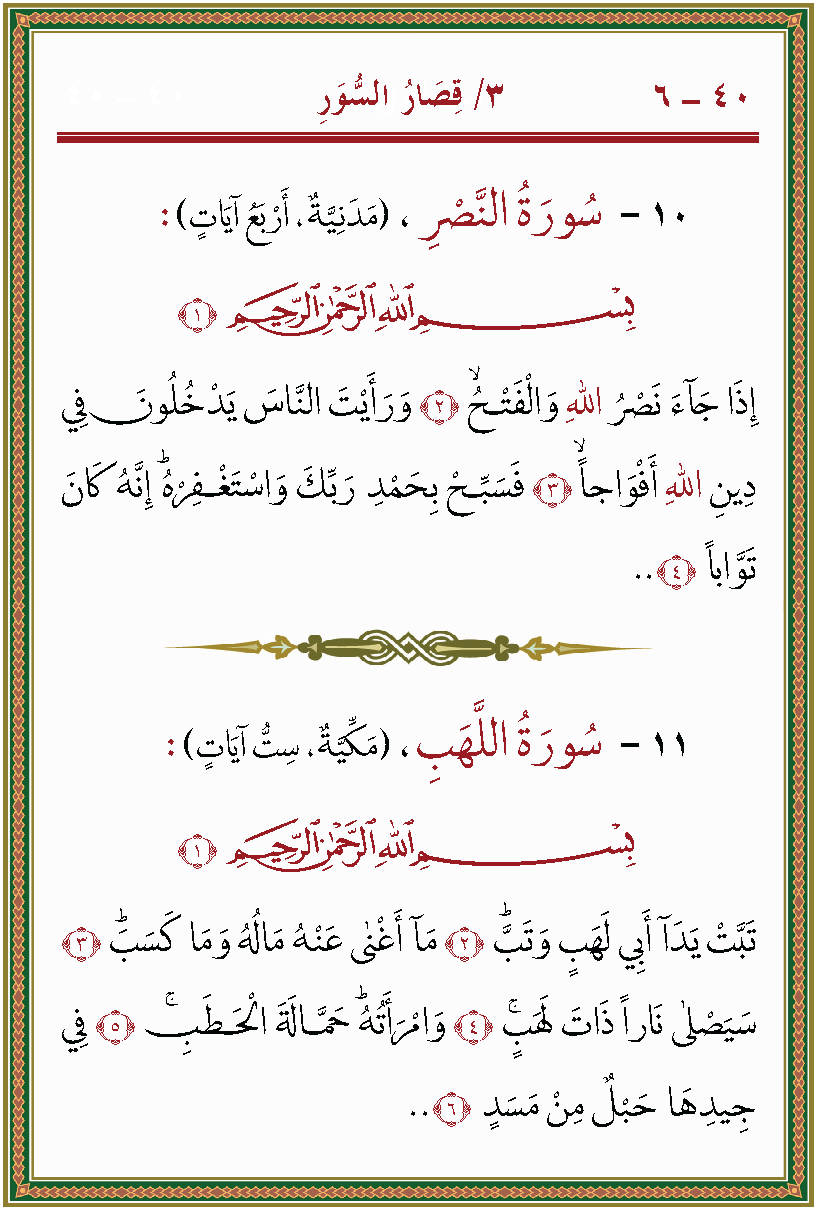 ٤٠ – ٦ ٣/ قِصَارُ السُّوَرِ
١٠ – سُورَةُ النَّصْرِ ، (مَدَنِيَّةٌ، أَرْبَعُ آيَاتٍ) :
بِسْمِ اللهِ الرَّحْمٰنِ الرَّحِيمِ ﴿١﴾
إِذَا جَآءَ نَصْرُ اللهِ وَالْفَتْحُ ۙ ﴿٢﴾ وَرَأَيْتَ النَّاسَ يَدْخُلُونَ فِي
دِينِ اللهِ أَفْوَاجاً ۙ ﴿٣﴾ فَسَبِّحْ بِحَمْدِ رَبِّكَ وَاسْتَغْفِرْهُ ۗ إِنَّهُ كَانَ
تَوَّاباً ﴿٤﴾..
١١ – سُورَةُ اللَّهَبِ ، (مَكِّيَّةٌ، سِتُّ آيَاتٍ) :
بِسْمِ اللهِ الرَّحْمٰنِ الرَّحِيمِ ﴿١﴾
تَبَّتْ يَدَآ أَبِي لَهَبٍ وَتَبَّ ۗ ﴿٢﴾ مَآ أَغْنٰى عَنْهُ مَالُهُ وَمَا كَسَبَ ۗ ﴿٣﴾
سَيَصْلٰى نَاراً ذَاتَ لَهَبٍ ۚ ﴿٤﴾ وَامْرَأَتُهُ ۗ حَمَّالَةَ الْحَطَبِ ۚ ﴿٥﴾ فِي
جِيدِهَا حَبْلٌ مِنْ مَسَدٍ ﴿٦﴾..